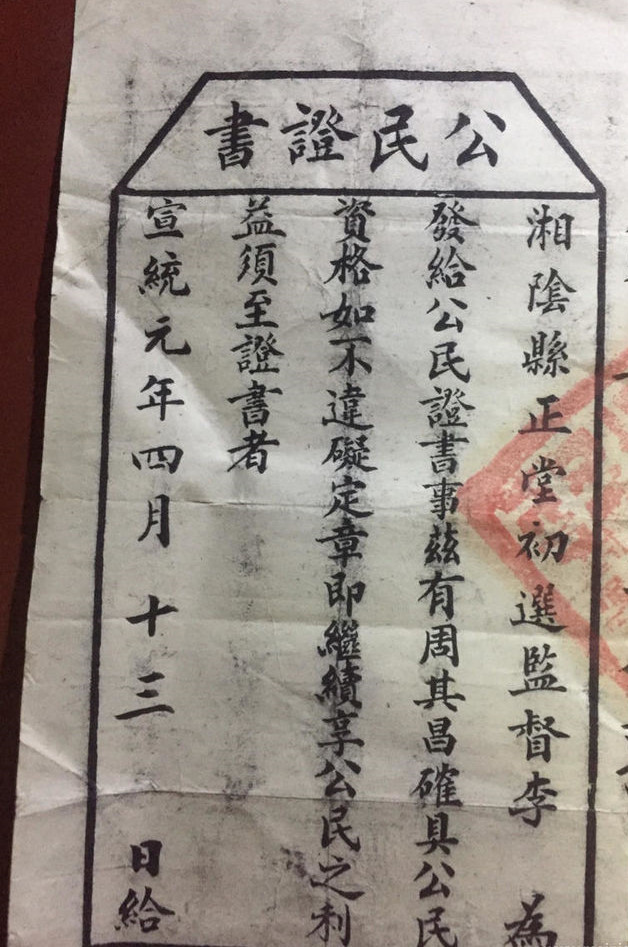 公民證書
湘陰縣正堂初選監督李 為
發給公民證書事茲有周其昌確具公民
資格如不違礙定章即繼續享公民之利
益須至證書者
宣統元年四月十三 日給